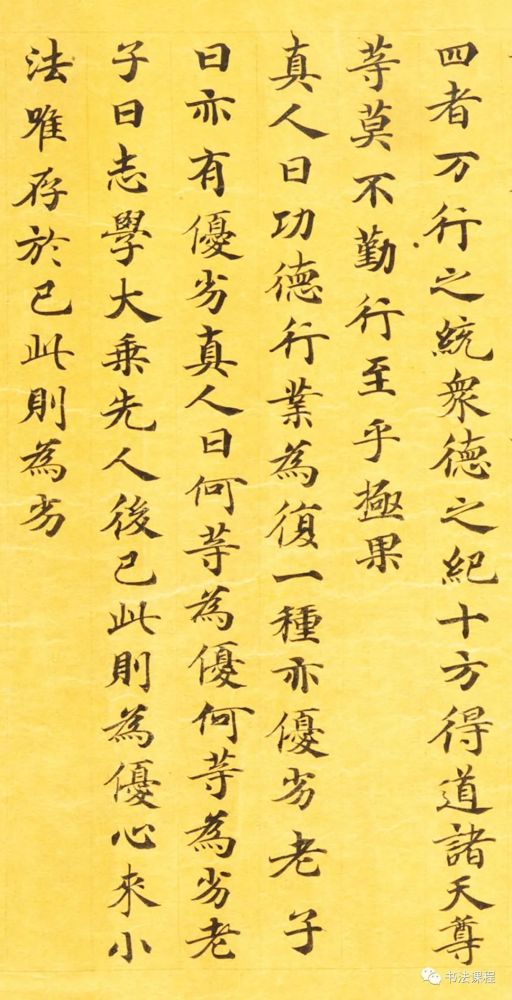 四者万行之統衆德之紀十方得道諸天尊
䓁莫不勤行至乎極果
真人曰功德行業為復一種亦優劣老子
曰亦有優劣真人曰何䓁為優何䓁為劣老
子曰志學大乗先人後已此則為優心來小
法唯存於已此則為劣
书法课程